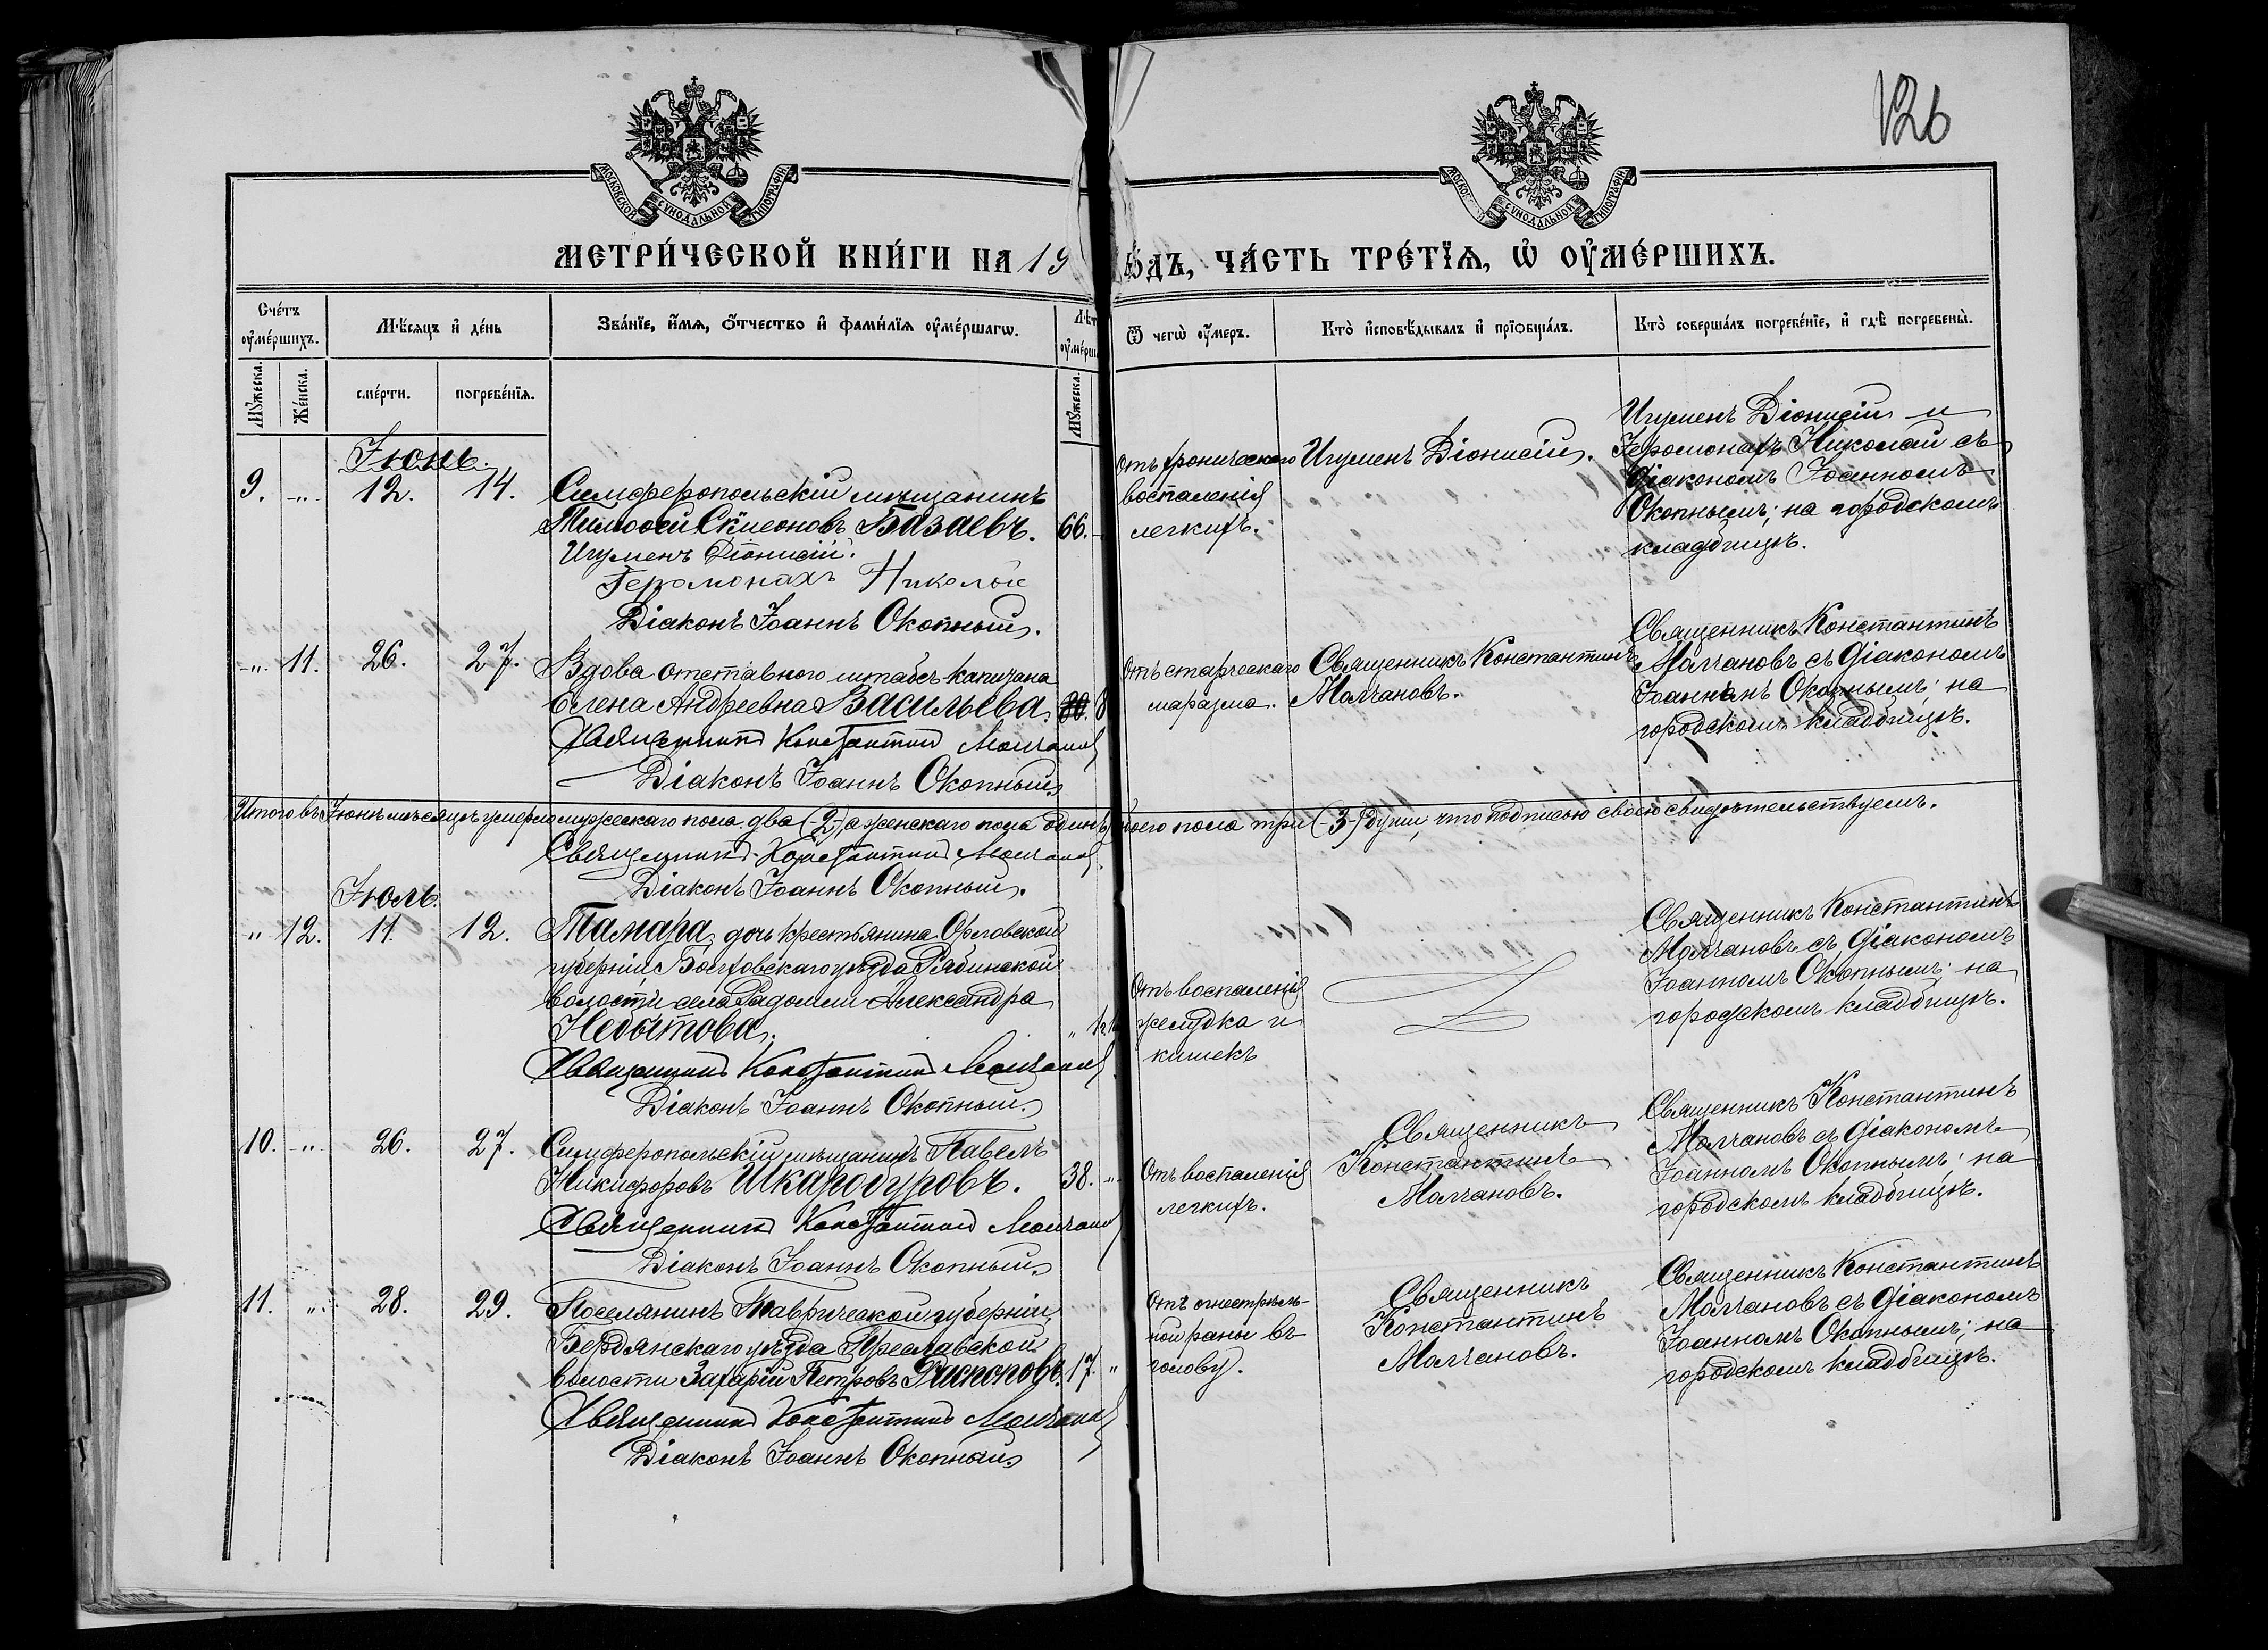 126
МОСКОВСКОЙ СѴНОДАЛЬНОЙ ТИПОГРАФІИ
МОСКОВСКОЙ СѴНОДАЛЬНОЙ ТИПОГРАФІИ
МЕТРИ́ЧЕСКОЙ КНИ́ГИ НА 19
ѠДЪ, ЧА́СТЬ ТРЕ́ТІѦ, Ѡ ОУМЕ́РШИХЪ.
Сче́тъ оуме́ршихъ.
Мѣ́сяцъ и де́нь
Зва́ніе, и́мѧ, ѻ́тчество и фами́лїѧ оуме́ршагѡ.
Лѣт оуме́рш
Ѿ чегѡ̀ оу́меръ.
Кто̀ исповѣ́дывалъ и прїѡбща́лъ.
Кто̀ соверша́лъ погребе́нїе, и гдѣ̀ погребены̀.
Мꙋ́жеска.
Же́нска.
сме́рти.
погребе́нїѧ.
Мꙋ́жеска.
Іюнь.
9. -"- 12. 14.
Симферопольскій мѣщанинъ
Тимоѳей Сѵмеоновъ Базаевъ. 66.
Игуменъ Діонисій.
Іеромонахъ Николай
Діаконъ Іоаннъ Окопный.
Отъ хроническаго
воспаленія
легкихъ.
Игуменъ Діонисій.
Игуменъ Діонисій и
Іеромонахъ Николай съ
діакономъ Іоанномъ
Окопнымъ; на городскомъ
кладбищѣ.
-"- 11. 26. 27.
Вдова отставного штабсъ-капитана
Елена Андреевна Васильева. 8
Священникъ Константинъ Молчановъ
Діаконъ Іоаннъ Окопный.
Отъ старческаго
маразма.
Священникъ Константинъ
Молчановъ.
Священникъ Константинъ
Молчановъ съ діакономъ
Іоанномъ Окопнымъ; на
городскомъ кладбищѣ.
Итого въ Іюнѣ мѣсяцѣ умерло мужескаго пола два (-2-) а женскаго пола одинъ
боего пола три (-3-) души, что подписью своею свидѣтельствуемъ.
Священникъ Константинъ Молчановъ
Діаконъ Іоаннъ Окопный.
Іюль.
" 12. 11. 12.
Тамара, дочь крестьянина Орловской
губерніи Болховскаго уѣзда Рябинской
волости села Радомли Александра
Небытова.
Священникъ Константинъ Молчановъ
Діаконъ Іоаннъ Окопный.
Отъ воспаленія
желудка и
кишекъ
Священникъ Константинъ
Молчановъ съ діакономъ
Іоанномъ Окопнымъ; на
городскомъ кладбищѣ.
10. -"- 26. 27.
Симферопольскій мѣщанинъ Павелъ
Никифоровъ Шкаробуровъ. 38. -"-
Священникъ Константинъ Молчановъ
Діаконъ Іоаннъ Окопный.
Отъ воспаленія
легкихъ.
Священникъ
Константинъ
Молчановъ.
Священникъ Константинъ
Молчановъ съ діакономъ
Іоанномъ Окопнымъ; на
городскомъ кладбищѣ.
11. " 28. 29.
Поселянинъ Таврической губерніи,
Бердянскаго уѣзда Преславской
волости Захарій Петровъ 17. "
Священникъ Константинъ Молчановъ
Діаконъ Іоаннъ Окопный
Отъ огнестрѣль-
ной раны въ
голову.
Священникъ
Константинъ
Молчановъ.
Священникъ Константинъ
Молчановъ съ діакономъ
Іоанномъ Окопнымъ; на
городскомъ кладбищѣ.